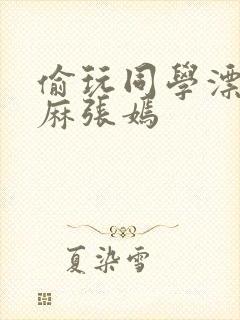 偷玩同學漂
麻張嫣
夏染雪